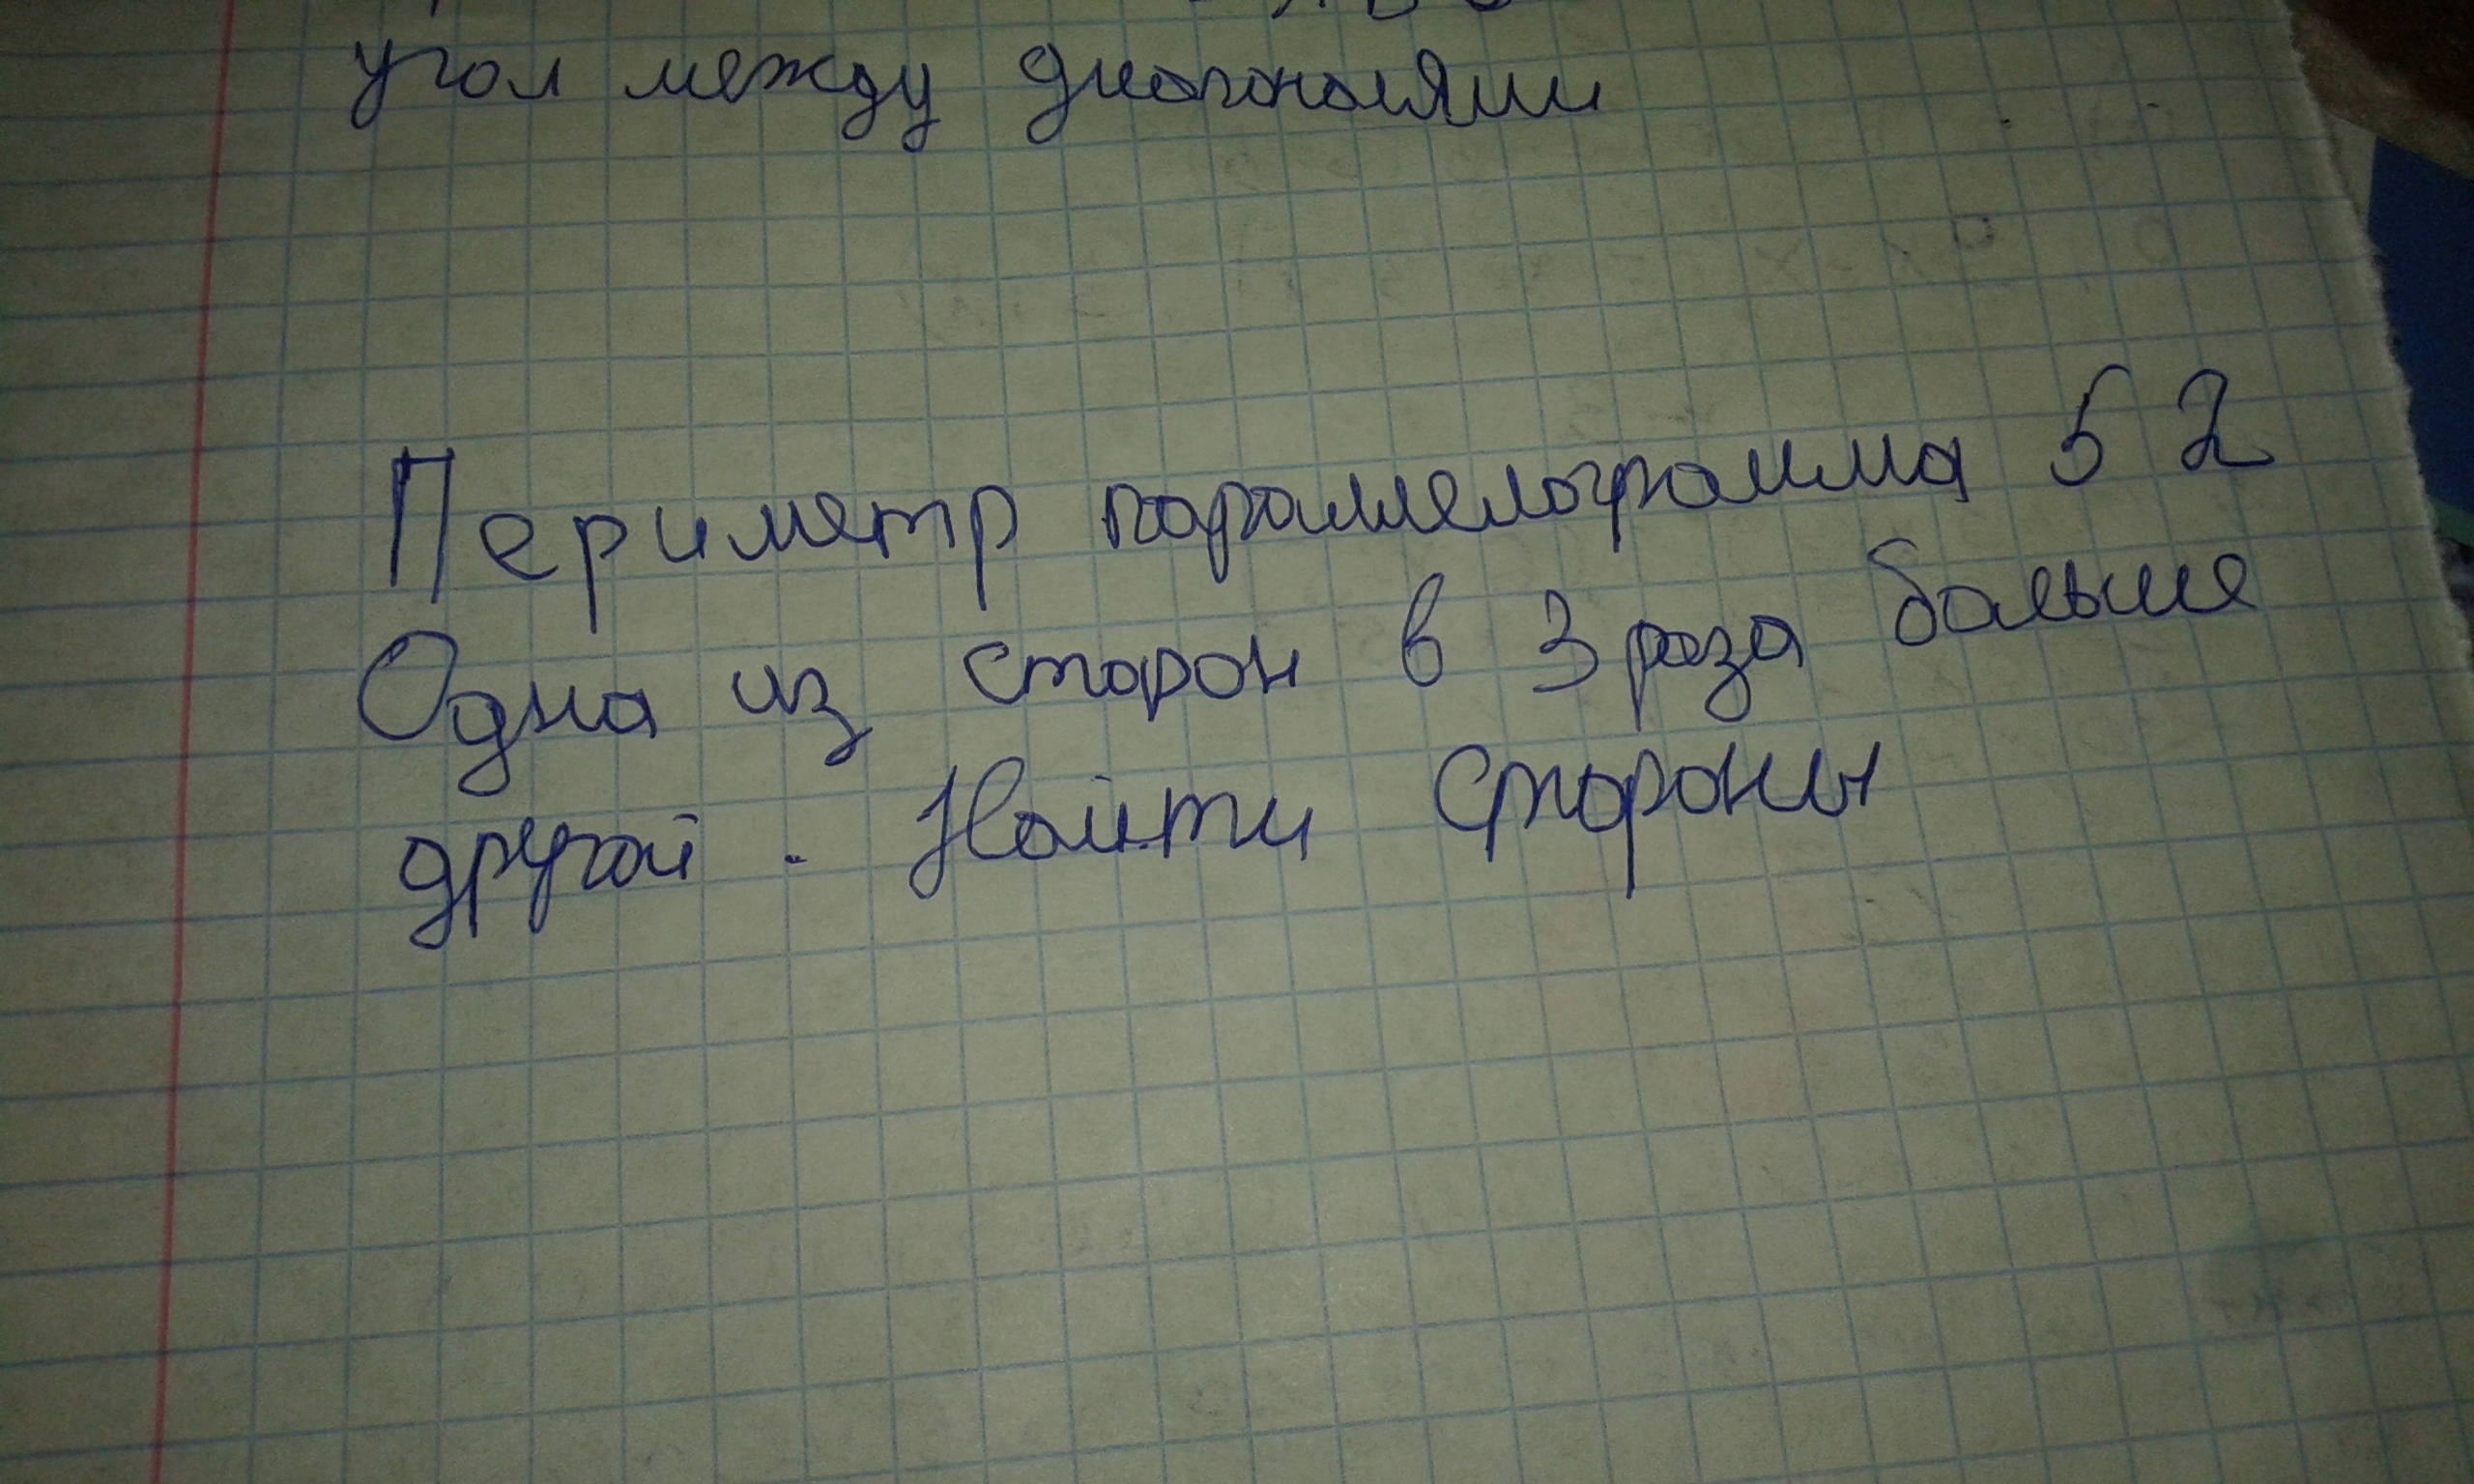 угол между диагоналями
Периметр параллелограмма 52
Одна из сторон в 3 раза больше
другой. Найти стороны